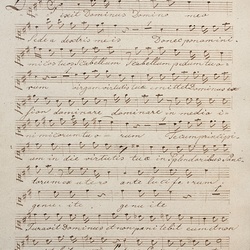 Dixit Dominus Domino meo
Sede a dextris meis Donec ponam ini
micos tuos scabellum scabellum pedum tuo
rum virgam virtutis tuae emittet Dominus ex
Sion dominare dominare in medio i
ni micorum tuo rum Tecum princi pi
um in die virtutis tuae in splendoribus Sanc
torum ex utero ante luciferum
genui te genui te
Juravit Dominus et non poenitebit eum